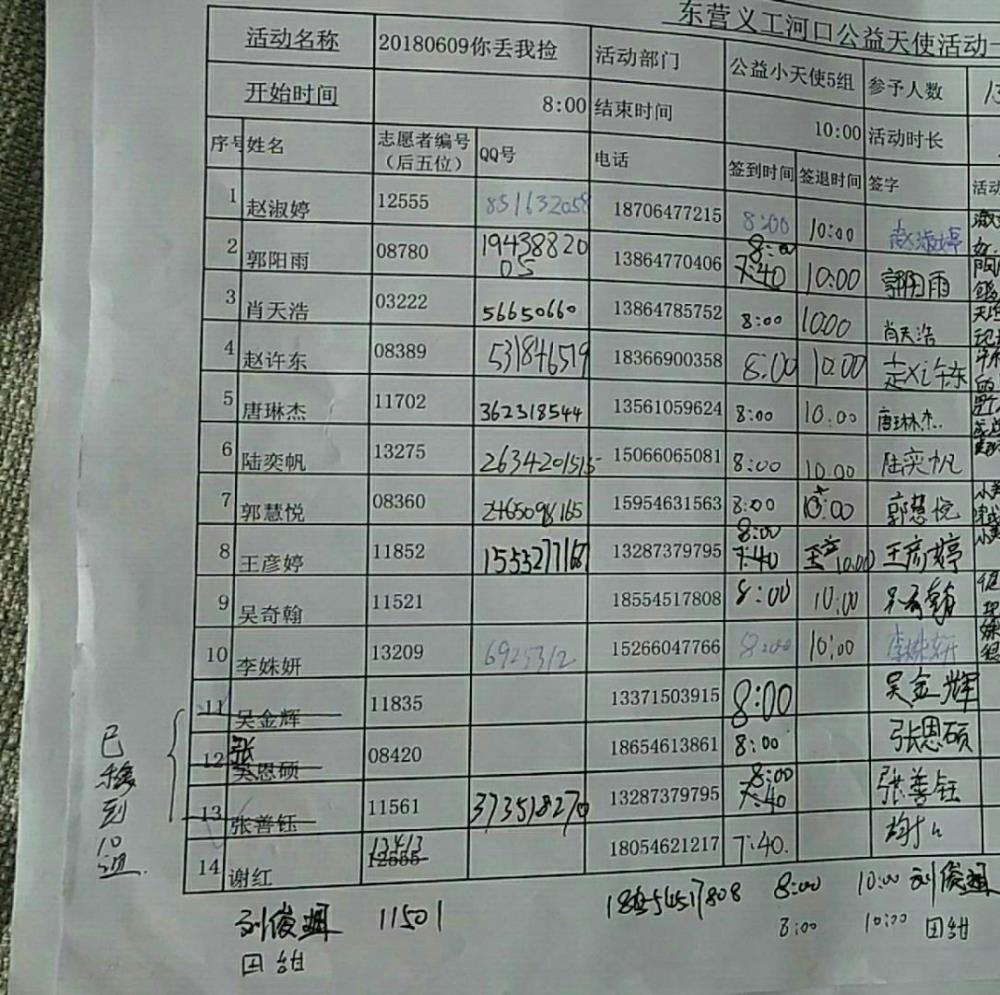 东营义工河口公益天使活动
活动名称 20180609你丢我捡 活动部门 公益小天使5组 参予人数
开始时间 8:00 结束时间 10:00 活动时长
序号 姓名 志愿者编号（后五位） QQ号 电话 签到时间 签退时间 签字 活动
1 赵淑婷 12555 851632058 18706477215 8:00 10:00 赵淑婷
2 郭阳雨 08780 1943882005 13864770406 8:00 7:40 10:00 郭阳雨
3 肖天浩 03222 56650660 13864785752 8:00 10:00 肖天浩
4 赵许东 08389 531846519 18366900358 8:00 10:00 赵许东
5 唐琳杰 11702 362318544 13561059624 8:00 10:00 唐琳杰
6 陆奕帆 13275 2634201515 15066065081 8:00 10:00 陆奕帆
7 郭慧悦 08360 2465098165 15954631563 8:00 10:00 郭慧悦
8 王彦婷 11852 1553277168 13287379795 8:00 7:40 10:00 王彦婷
9 吴奇翰 11521 18554517808 8:00 10:00 吴奇翰
10 李姝妍 13209 6925312 15266047766 8:00 10:00 李姝妍
11 吴金辉 11835 13371503915 8:00 吴金辉
12 张 吴恩硕 08420 18654613861 8:00 张恩硕
13 张善钰 11561 373518270 13287379795 8:00 7:40 张善钰
14 谢红 13413 12555 18054621217 7:40.
已移到10组.
刘俊 11501 8:00 10:00 刘俊
田甜 8:00 10:00 田甜